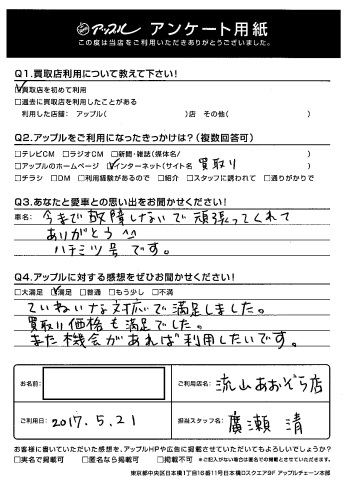 アップル アンケート用紙
この度は当店をご利用いただきありがとうございました。
Q1.買取店利用について教えて下さい!
☑買取店を初めて利用
□過去に買取店を利用したことがある
利用した店舗: アップル( )店 その他( )
Q2.アップルをご利用になったきっかけは?(複数回答可)
□テレビCM □ラジオCM □新聞・雑誌(媒体名/ )
□アップルのホームページ ☑インターネット(サイト名 買取り )
□チラシ □DM □利用経験があるので □紹介 □スタッフに誘われて □通りがかりで
Q3.あなたと愛車との思い出をお聞かせください!
車名: 今まで故障しないで頑張ってくれて
ありがとう ^^
ハチミツ号です。
Q4.アップルに対する感想をぜひお聞かせください!
□大満足 ☑満足 □普通 □もう少し □不満
ていねいな対応で満足しました。
買取り価格も満足でした。
また機会があれば利用したいです。
お名前:
ご利用店名: 流山あおぞら店
ご利用日: 2017.5.21
担当スタッフ名: 廣瀬 清
お客様に書いていただいた感想を、アップルHPや広告に掲載させていただいてもよろしいでしょうか?
□実名で掲載可 □匿名なら掲載可 □掲載不可 ※ご記入がない場合は匿名での掲載とさせていただきます。
東京都中央区日本橋1丁目16番11号日本橋Dスクエア9F アップルチェーン本部